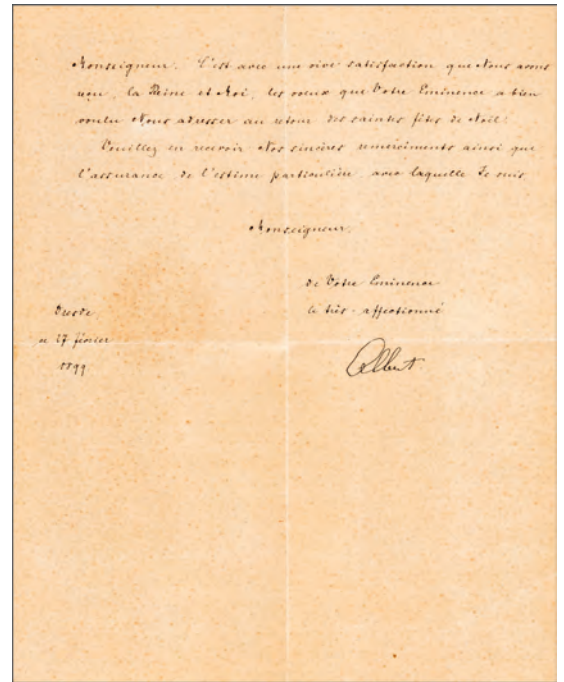 Monseigneur. C'est avec une vive satisfaction que Nous avons
reçu, la Reine et Moi, les voeux que Votre Eminence a bien
voulu Nous adresser au retour des saintes fêtes de Noël.
Veuillez en recevoir Nos sincères remerciments ainsi que
l'assurance de l'estime particulière avec laquelle Je suis
Monseigneur,
de Votre Eminence
le très-affectionné
Dresde,
ce 27 février
1899
Albert